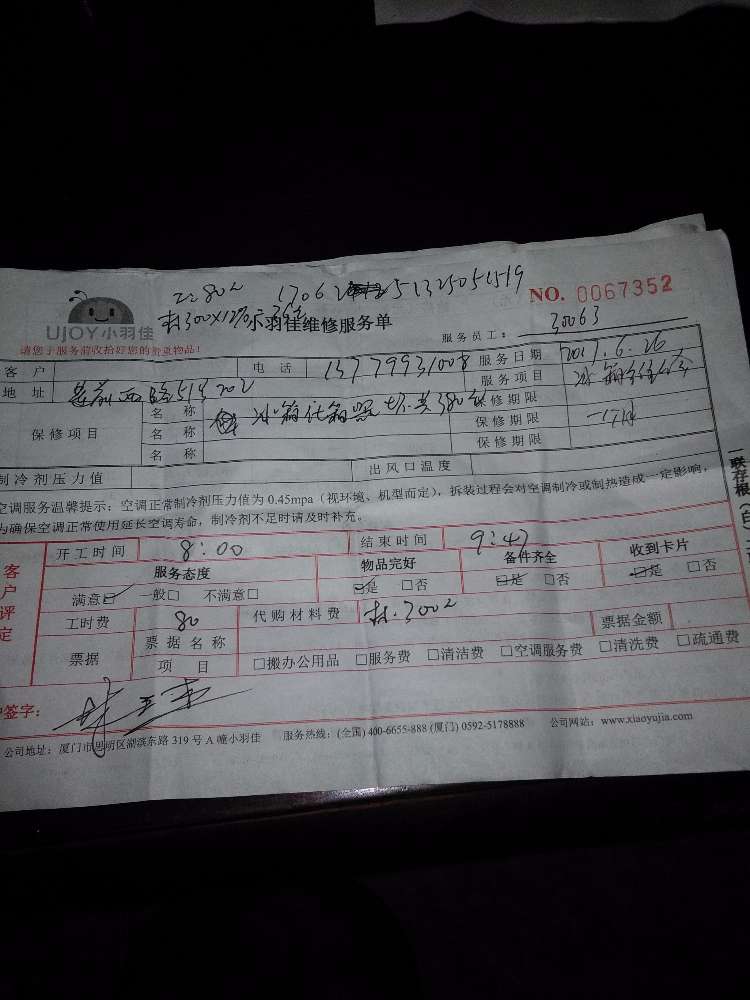 NO. 0067352
UJOY小羽佳
小羽佳维修服务单
请您于服务前收拾好您的贵重物品！
服务员工： 30063
客户 电话 13779931008 服务日期 2017.6.26
地址 服务项目
保修项目 名称 保修期限
名称 保修期限
名称 保修期限
制冷剂压力值 出风口温度
空调服务温馨提示：空调正常制冷剂压力值为0.45mpa（视环境、机型而定），拆装过程会对空调制冷或制热造成一定影响，
为确保空调正常使用延长空调寿命，制冷剂不足时请及时补充。
开工时间 8:00 结束时间 9:47
客户评定
服务态度 物品完好 备件齐全 收到卡片
满意☑ 一般□ 不满意□ ☑是 □否 ☑是 □否 ☑是 □否
工时费 80 代购材料费 材.300元 票据金额
票据 票据名称
项目 □搬办公用品 □服务费 □清洁费 □空调服务费 □清洗费 □疏通费
户签字：
公司地址：厦门市思明区湖滨东路319号A幢小羽佳 服务热线：(全国) 400-6655-888 (厦门) 0592-5178888 公司网站：www.xiaoyujia.com
联存根